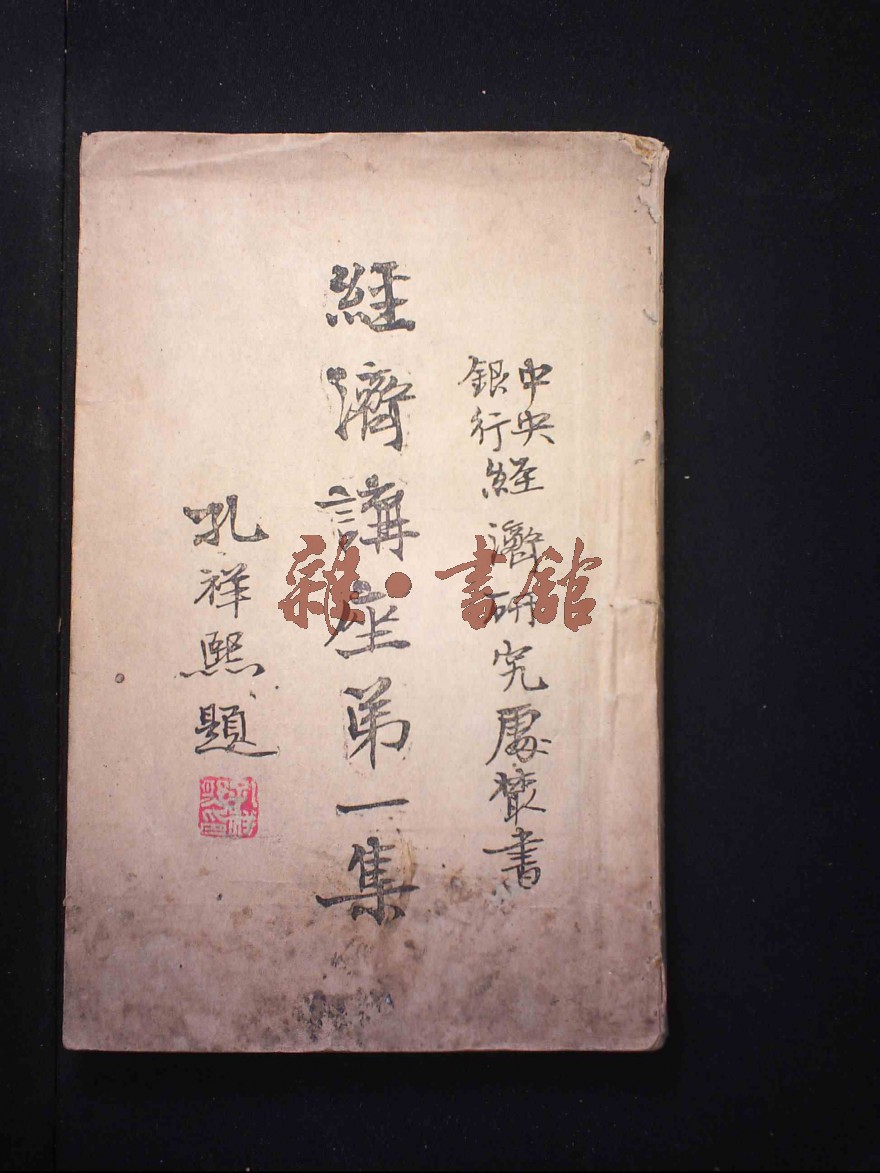 中央
銀行
經濟研究處叢書
經濟講座第一集
孔祥熙題
雜·書館